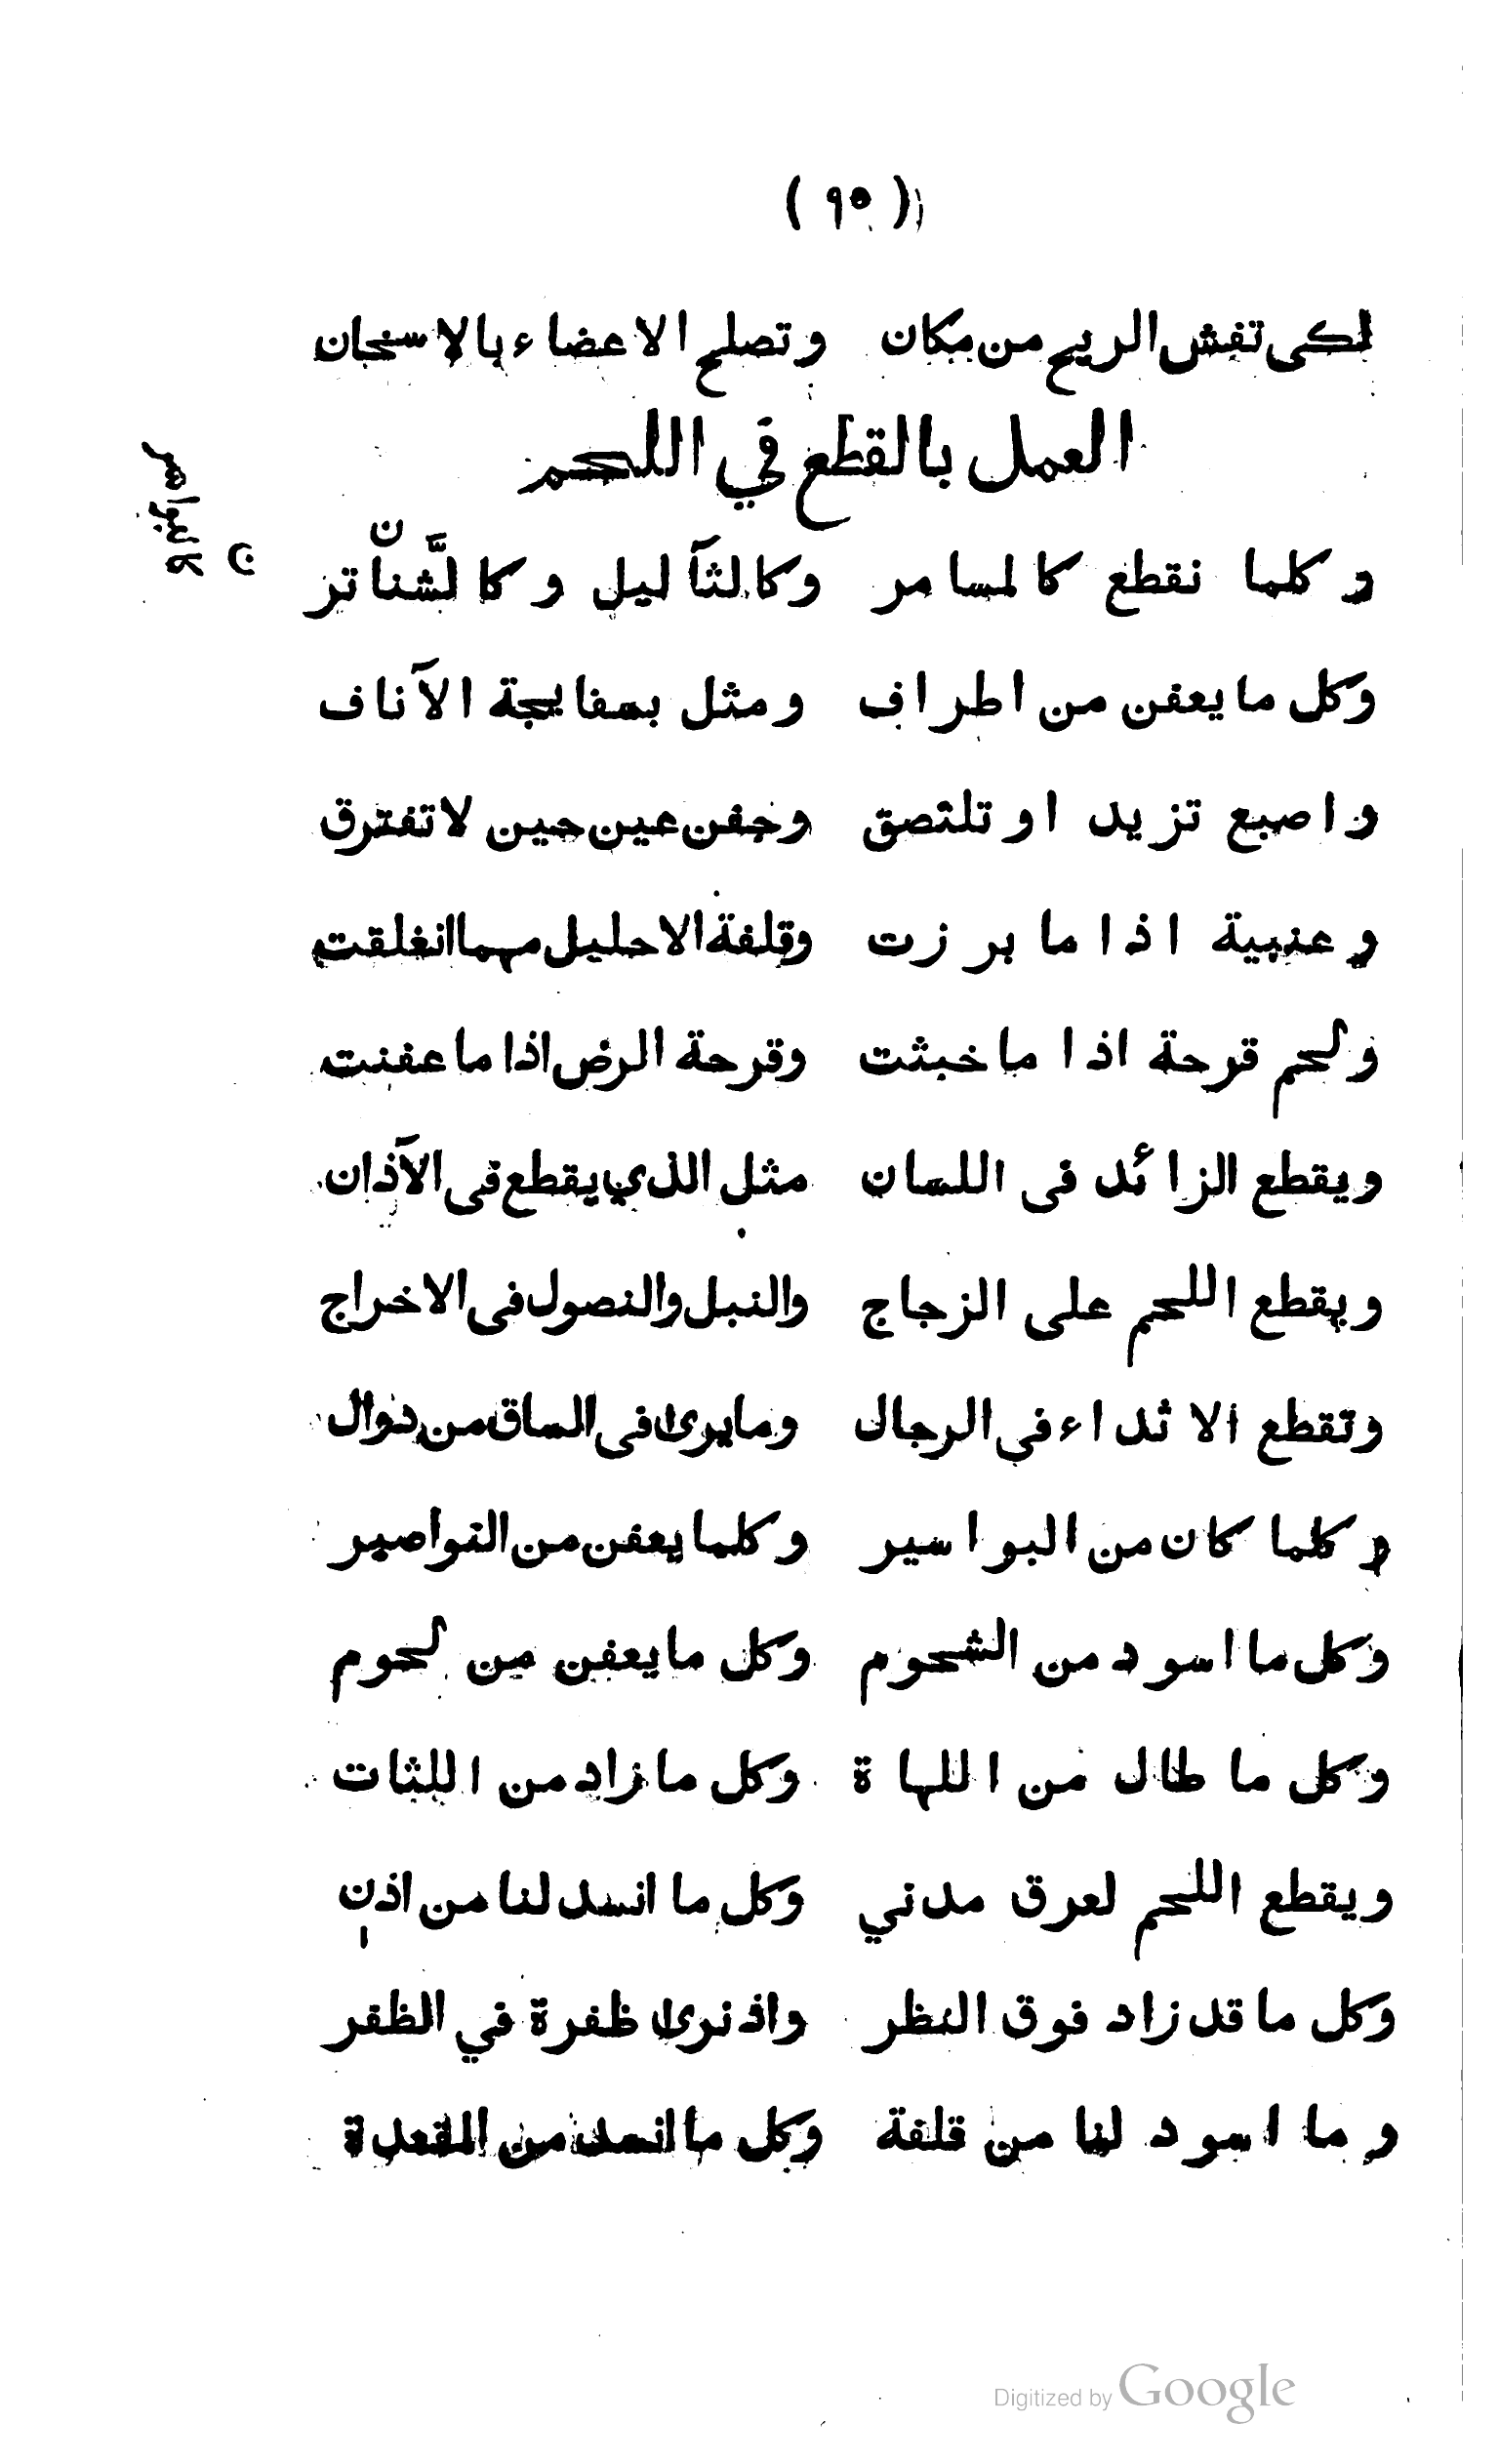 ( ٩٥ )
لكى تفش الريح من مكان وتصلح الاعضاء بالاسنجان
العمل بالقطع في اللحم
وكلما نقطع كالمسامر وكالثآليل وكالشناتر
ن
وكل ما يعفن من اطراف ومثل بسفايجة الآناف
واصبع تزيد او تلتصق وجفن عين حين لا تفترق
وعنبية اذا ما برزت وقلفة الاحليل مهما انغلقت
ولحم قرحة اذا ما خبثت وقرحة الرض اذا ما عفنت
ويقطع الزائد فى اللسان مثل الذي يقطع فى الآذان
ويقطع اللحم على الزجاج والنبل والنصول فى الاخراج
وتقطع الاثداء في الرجال وما يرى فى الساق من دوال
وكلما كان من البواسير وكلما يعفن من النواصير
وكل ما اسود من الشحوم وكل ما يعفن من لحوم
وكل ما طال من اللهاة وكل ما زاد من اللثات
ويقطع اللحم لعرق مدني وكل ما انسد لنا من اذن
وكل ما قد زاد فوق النظر واذ نرى ظفرة في الظفر
وما اسود لنا من قلفة وكل ما انسد من المقعدة
Digitized by Google